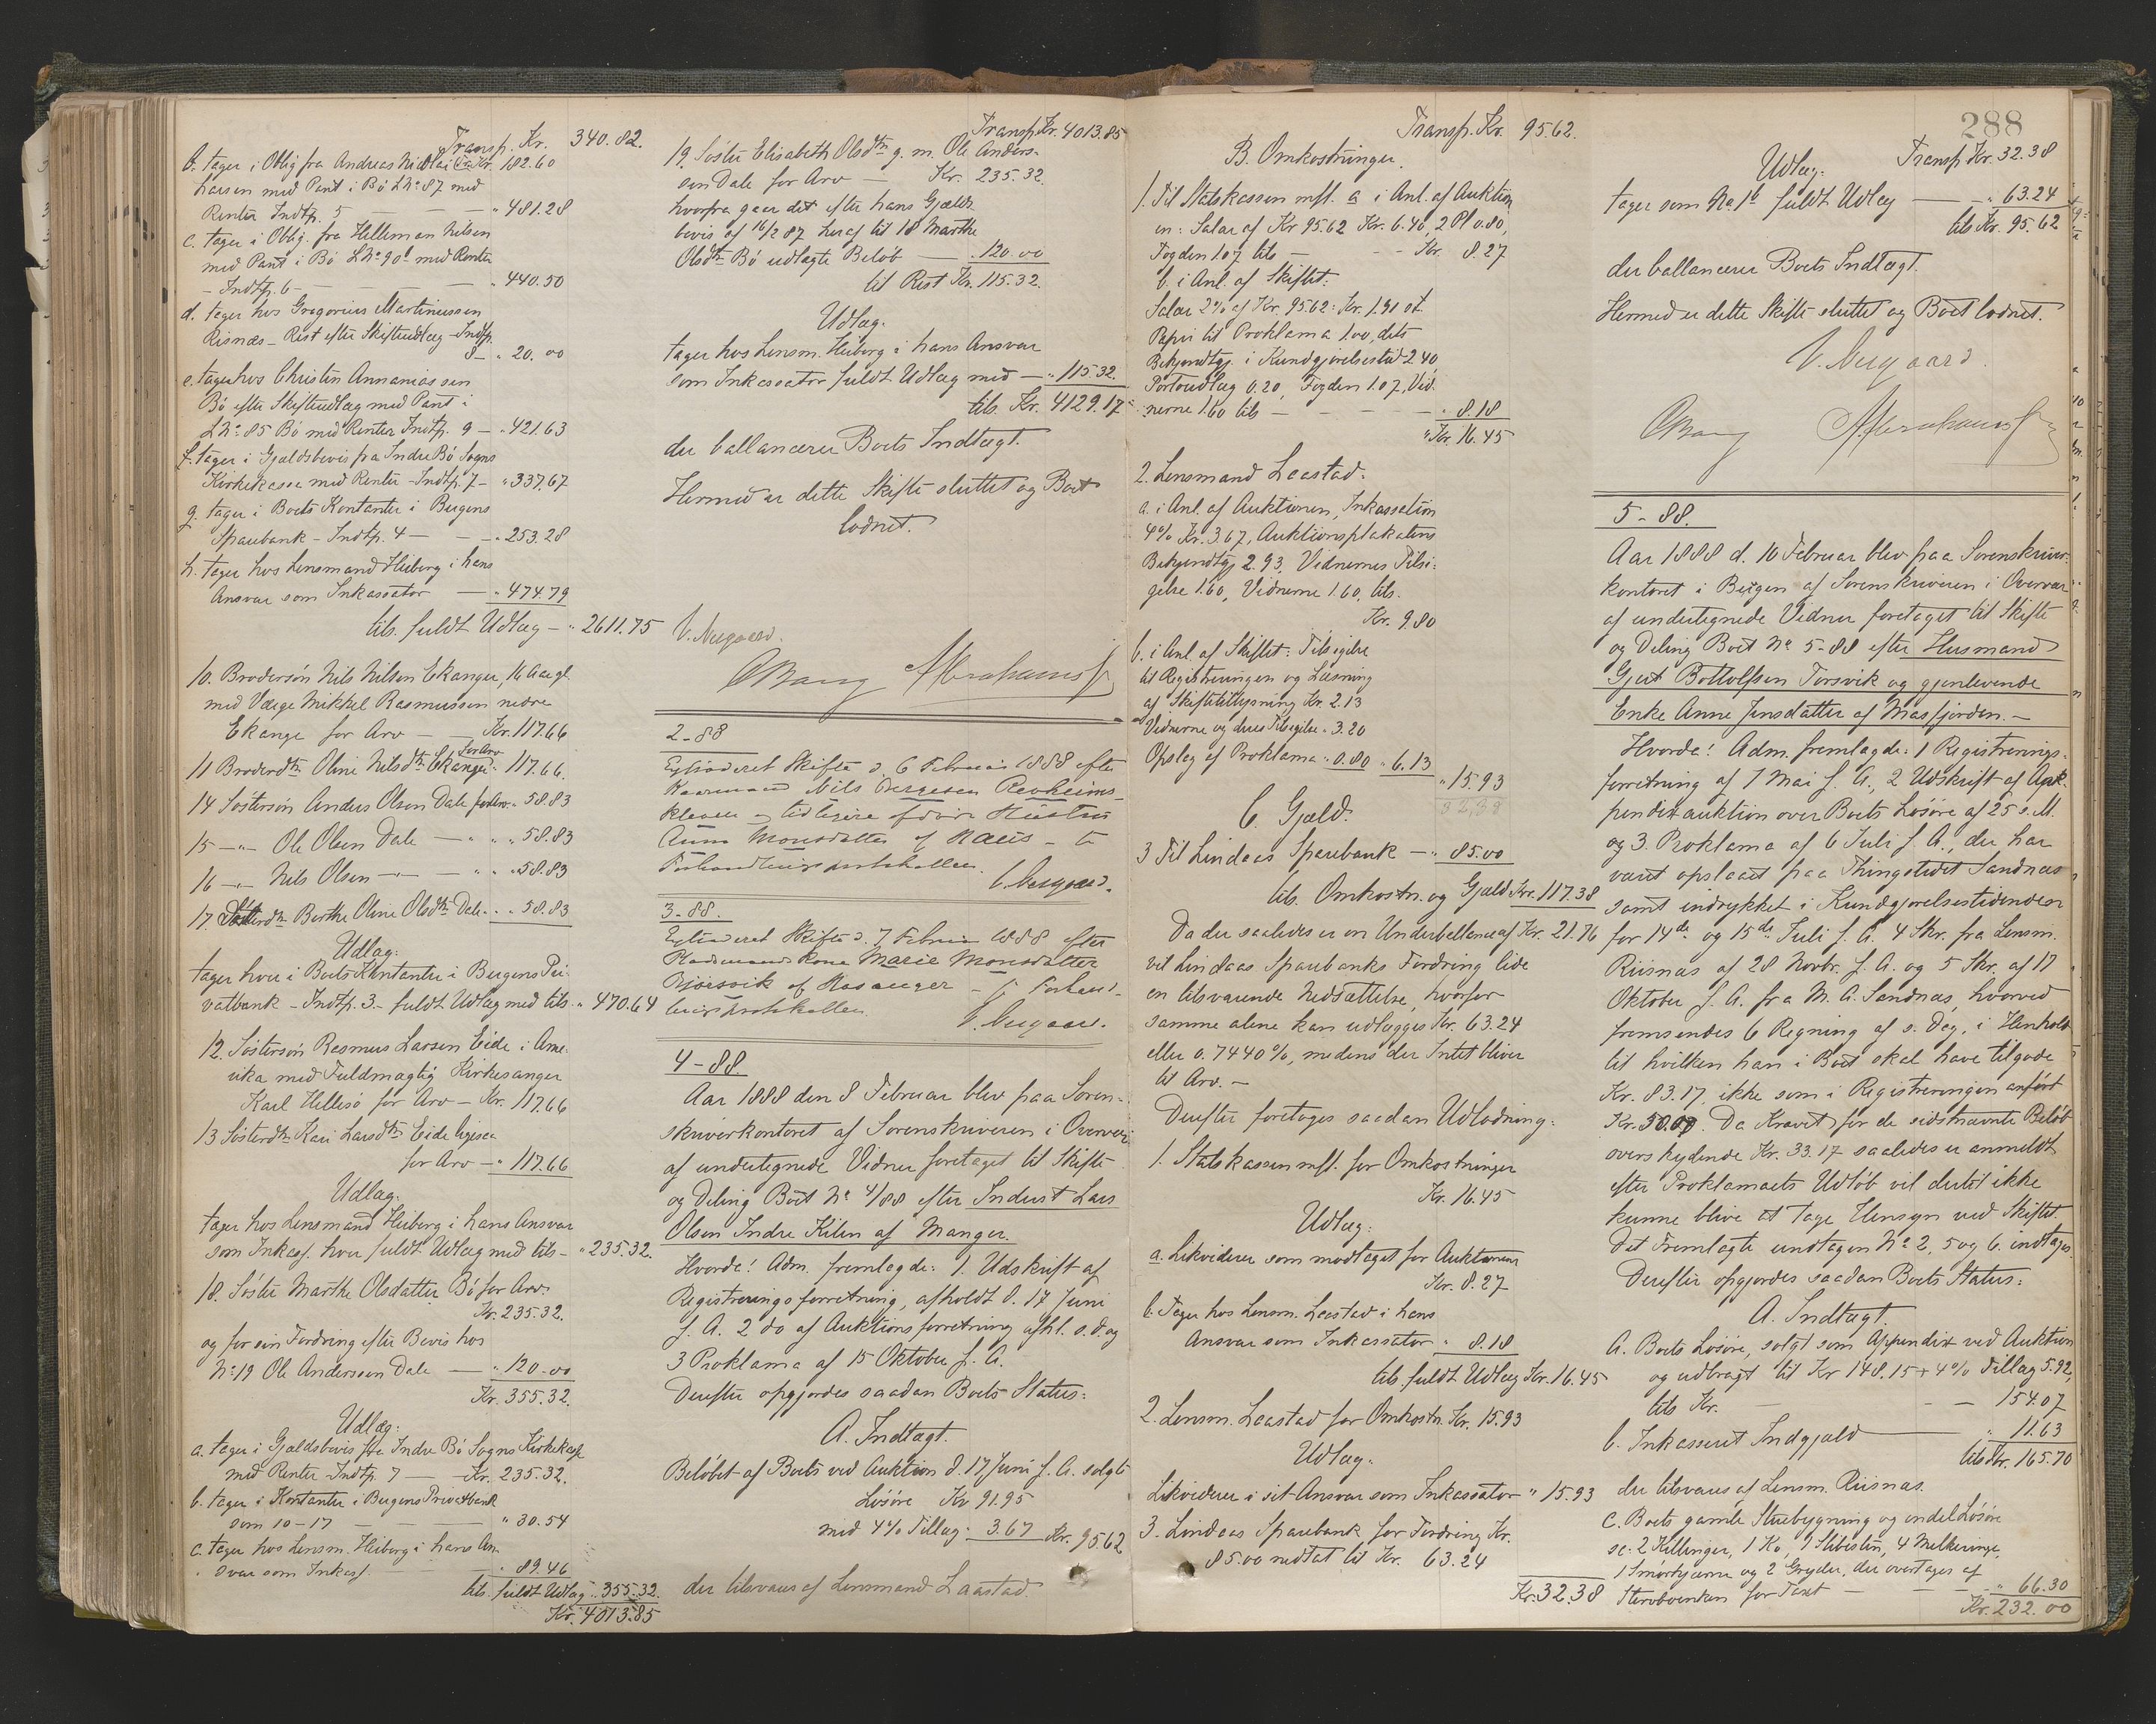 Transp. Kr. 340.82.
b. tager i Oblig fra Andreas Nicolai Kr. 182.60
Larsen med Pant i Bø L.No 87 med
Renter Indtp. 5 — — — " 481.28
c. tager i Oblig. fra Helleman Nilsen
med Pant i Bø L.No 90b med Renter
- Indtp. 6 - — — — " 440.50
d. tager hos Gregorius Martinussen
Risnæs - Rest efter Skifteudlæg - Indtp.
8 - " 20.00
e. tager hos Christen Annaniassen
Bø efter Skifteudlæg med Pant i
L.No 85 Bø med Renter Indtp. 9 — " 421.63
f. tager i Gjældsbevis fra Indre Bø Sogns
Kirkekasse med Renter - Indtp. 7 - " 337.67
g. tager i Boets Kontanter i Bergens
Sparebank - Indtp. 4 — — " 253.28
h. tager hos Lensmand Heiberg i hans
Ansvar som Inkassator — " 474.79
tils. fuldt Udlæg — " 2611.75
10. Brodersøn Nils Nilsen Ekanger, 16 Aar gl.
med Værge Mikkel Rasmussen nedre
Ekanger for Arv — — Kr. 117.66
11 Broderdtr. Oline Nilsdtr. Ekanger for Arv " 117.66.
14 Søstersøn Anders Olsen Dale for Arv " 58.83
15 —"— Ole Olsen Dale — " " " 58.83
16 —"— Nils Olsen —"— — " " " 58.83
17. Søsterdtr. Berthe Oline Olsdtr. Dale " " " 58.83
Udlæg:
tager hver i Boets Kontanter i Bergens Pri-
vatbank - Indtp. 3 - fuldt Udlæg med tils. " 470.64
12. Søstersøn Rasmus Larsen Eide i Ame-
rika med Fuldmægtig Kirkesanger
Karl Hillesø for Arv — Kr. 117.66
13 Søsterdtr. Kari Larsdtr. Eide ligesaa
for Arv — " 117.66
Udlæg:
tager hos Lensmand Heiberg i hans Ansvar
som Inkass. hver fuldt Udlæg med tils — " 235.32.
18. Søster Marthe Olsdatter Bø for Arv
Kr. 235.32.
og for sin Fordring efter Bevis hos
No 19 Ole Anderssen Dale — " 120.00
Kr. 355.32.
Udlæg:
a. tager i Gjældsbevis fra Indre Bø Sogns Kirkekasse
med Renter Indtp. 7 — Kr. 235.32.
b. tager i Kontanter i Bergens Privatbank
som 10-17 — — — " 30.54
c. tager hos Lensm. Heiberg i hans An-
svar som Inkass. — — " 89.46
tils. fuldt Udlæg " 355.32.
Kr. 4013.85
Transp Kr. 4013.85
19. Søster Elisabeth Olsdtr. g. m. Ole Anders-
sen Dale for Arv — Kr. 235.32.
hvorfra gaar det efter hans Gjælds-
bevis af 16/2 87 heraf til 18 Marthe
Olsdtr. Bø udlagte Beløb — " 120.00
til Rest Kr. 115.32.
Udlæg:
tager hos Lensm. Heiberg i hans Ansvar
som Inkassator fuldt Udlæg med — " 115.32.
tils. Kr. 4129.17
der ballancerer Boets Indtægt.
Hermed er dette Skifte sluttet og Boet
lodnet.
V. Neegaard.
CBang Abrahamsen
2-88
Extraderet Skifte d. 6 Februar 1888 efter
Kaarmand Nils Bergesen Revheims-
kleven og tidligere afdøde Hustru
Anna Monsdatter af Haus - til
Forhandlingsprotokollen.
V. Neegaard.
3-88.
Extraderet Skifte d. 7 Februar 1888 efter
Husmands Kone Marie Monsdatter
Bjørsvik af Hosanger - til Forhand-
lingsprotokollen.
V. Neegaard.
4-88.
Aar 1888 den 8 Februar blev paa Soren-
skriverkontoret af Sorenskriveren i Overvær
af undertegnede Vidner foretaget til Skifte
og Deling Boet No 4/88 efter Inderst Lars
Olsen Indre Kilen af Manger.
Hvorda! Adm. fremlagde: 1. Udskrift af
Registreringsforretning, afholdt d. 17 Juni
f. A. 2 do af Auktionsforretning afhl. s. d. og
3 Proklama af 15 Oktober f. A.
Derefter opgjordes saadan Boets Status:
A. Indtægt.
Beløbet af Boets ved Auktion d. 17 Juni f. A. solgte
Løsøre Kr 91.95
med 4% Tillæg " 3.67 — Kr. 95.62
der tilsvares af Lensmand Laastad
Transp. Kr. 95.62.
B. Omkostninger.
1. Til Statskassen mfl. a i Anl. af Auktion
en: Salær af Kr 95.62 Kr. 6.40, 2 Pl 0.80,
Fogden 1.07 tils — - - Kr. 8.27
b. i Anl. af Skiftet:
Salær 2% af Kr. 95.62: Kr. 1.91 st.
Papir til Proklama 1.00, dets
Bekjendtgj. i Kundgjørelsestid 2.40,
Portoudlæg 0.20, Fogden 1.07, Vid-
nerne 1.60 tils — — — " 8.18
" Kr. 16.45
2. Lensmand Laastad:
a. i Anl. af Auktionen, Inkassation
4% Kr. 3.67, Auktionsplakatens
Bekjendtgj. 2.93, Vidnernes Tilsi-
gelse 1.60, Vidnerne 1.60, tils.
Kr. 9.80
b. i Anl. af Skiftet: Tilsigelse
til Registreringen og Læsning
af Skiftetillysning Kr. 2.13
Vidnerne og deres Tilsigelse " 3.20
Opslag af Proklama " 0.80 " 6.13
" 15.93
32,38
C. Gjæld.
3 Til Lindaas Sparebank — " 85.00
tils. Omkostn. og Gjæld Kr. 117.38
Da der saaledes er en Underballance af Kr. 21.76
vil Lindaas Sparebanks Fordring lide
en tilsvarende Nedsættelse, hvorfor
samme alene kan udlægges Kr. 63.24
eller 0.7440 %, medens der Intet bliver
til Arv. —
Derefter foretoges saadan Udlodning:
1. Statskassen mfl. for Omkostninger
Kr. 16.45
Udlæg:
a. Likviderer som modtaget for Auktionen
Kr. 8.27
b. Tager hos Lensm. Laastad i hans
Ansvar som Inkassator " 8.18
tils. fuldt Udlæg Kr. 16.45
2. Lensm. Laastad for Omkostn. Kr. 15.93
Udlæg:
Likviderer i sit Ansvar som Inkassator " 15.93
3. Lindaas Sparebank for Fordring Kr.
85.00 nedsat til Kr. 63.24
Kr. 32.38
288
Transp Kr. 32.38
Udlæg:
tager som No 1b fuldt Udlæg — — " 63.24
tils Kr. 95.62
der ballancerer Boets Indtægt.
Hermed er dette Skifte sluttet og Boet lodnet.
V. Neegaard
CBang Abrahamsen
5-88.
Aar 1888 d. 10 Februar blev paa Sorenskriver-
kontoret i Bergen af Sorenskriveren i Overvær
af undertegnede Vidner foretaget til Skifte
og Deling Boet No 5-88 efter Husmand
Gjert Bottolfsen Torsvik og gjenlevende
Enke Anne Jensdatter af Masfjorden. —
Hvorda! Adm. fremlagde: 1 Registrerings-
forretning af 7 Mai f. A., 2 Udskrift af Ap-
pendixauktion over Boets Løsøre af 25 s. M.
og 3. Proklama af 6 Juli f. A., der har
været opslaaet paa Thingstedet Sandnæs
samt indrykket i Kundgjørelsestidenden
for 14de og 15de Juli f. A. 4 Skr. fra Lensm.
Riisnæs af 28 Novbr. f. A. og 5 Skr. af 17
Oktober f. A. fra M. A. Sandnæs, hvorved
fremsendes 6 Regning af s. Dag, i Henhold
til hvilken han i Boet skal have tilgode
Kr. 83.17, ikke som i Registreringen anført
Kr. 50.00. Da Kravet for de sidstnævnte Beløb
overskydende Kr. 33.17 saaledes er anmeldt
efter Proklamaets Udløb vil dertil ikke
kunne blive at tage Hensyn ved Skiftet.
Det Fremlagte undtagen No 2, 5 og 6. indtages.
Derefter opgjordes saadan Boets Status:
A. Indtægt.
A. Boets Løsøre, solgt som Appendix ved Auktion
og udbragt til Kr 148.15 + 4% Tillæg 5.92,
tils Kr. — — — 154.07
b. Inkasseret Indgjæld — " 11.63
tils Kr. 165.70
der tilsvares af Lensm. Riisnæs.
C. Boets gamle Stuebygning og endel Løsøre
sc: 2 Killinger, 1 Ko, 1 Slibesten, 4 Melkeringe,
1 Smørkjærne og 2 Gryder, der overtages af
Stervboenken for Taxt — — — " 66.30
Kr. 232.00